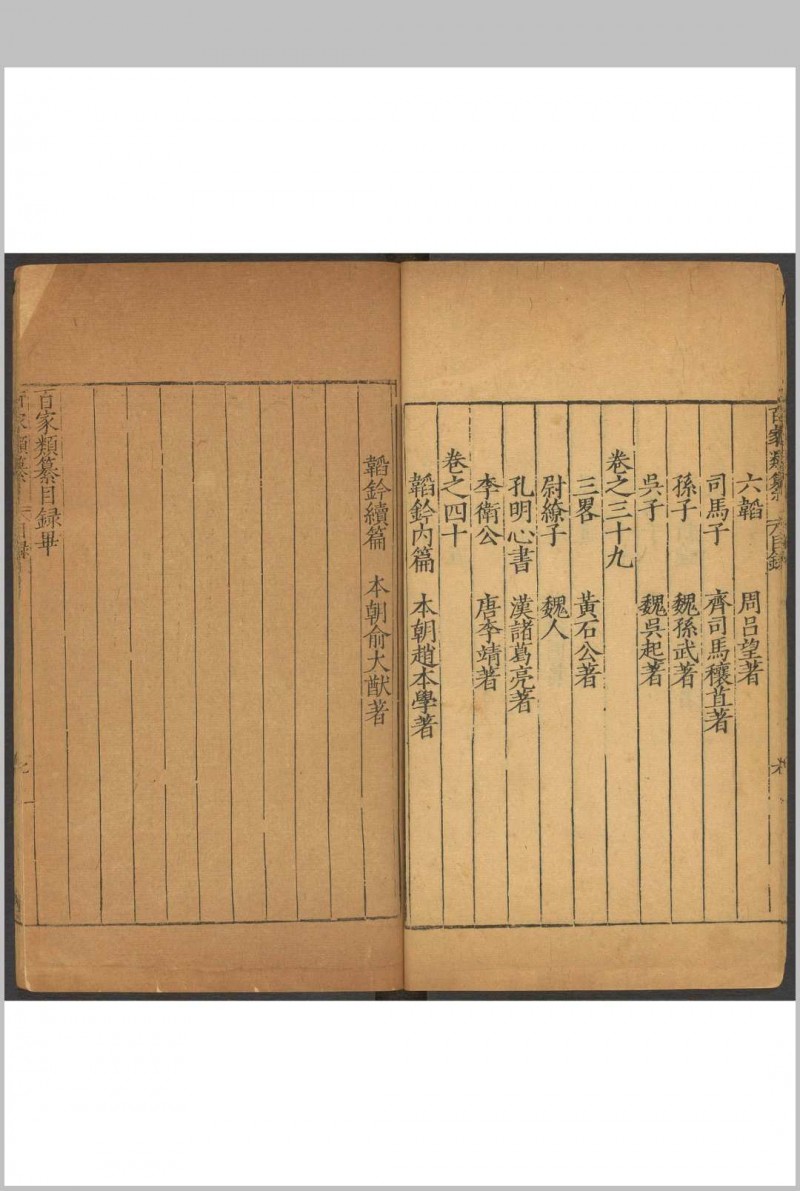 百家類纂 目錄
六韜 周呂望著
司馬子 齊司馬穰苴著
孫子 魏孫武著
吳子 魏吳起著
卷之三十九
三畧 黃石公著
尉繚子 魏人
孔明心書 漢諸葛亮著
李衛公 唐李靖著
卷之四十
韜鈐內篇 本朝趙本學著
韜鈐續篇 本朝俞大猷著
百家類纂目録畢